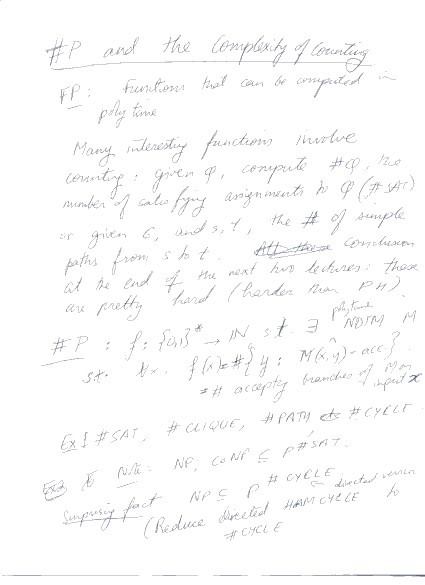 #P and the Complexity of Counting
FP: Functions that can be computed in
poly time
Many interesting functions involve
counting: given φ, compute #φ, the
number of satisfying assignments to φ (#SAT)
or given G, and s, t, the # of simple
paths from s to t. All these conclusion
at the end of the next two lectures: these
are pretty hard (harder than PH)
#P : f: {0,1}* → IN s.t. ∃ polytime NDTM M
st. ∀x. f(x) = #{y : M(x,y) = acc}
= # accepting branches of M on input x
Ex 1 #SAT, #CLIQUE, #PATH #CYCLE
Note: NP, CoNP ⊆ P^#SAT.
surprising fact NP ⊆ P^#CYCLE ← directed version
(Reduce directed HAMCYCLE to
#CYCLE